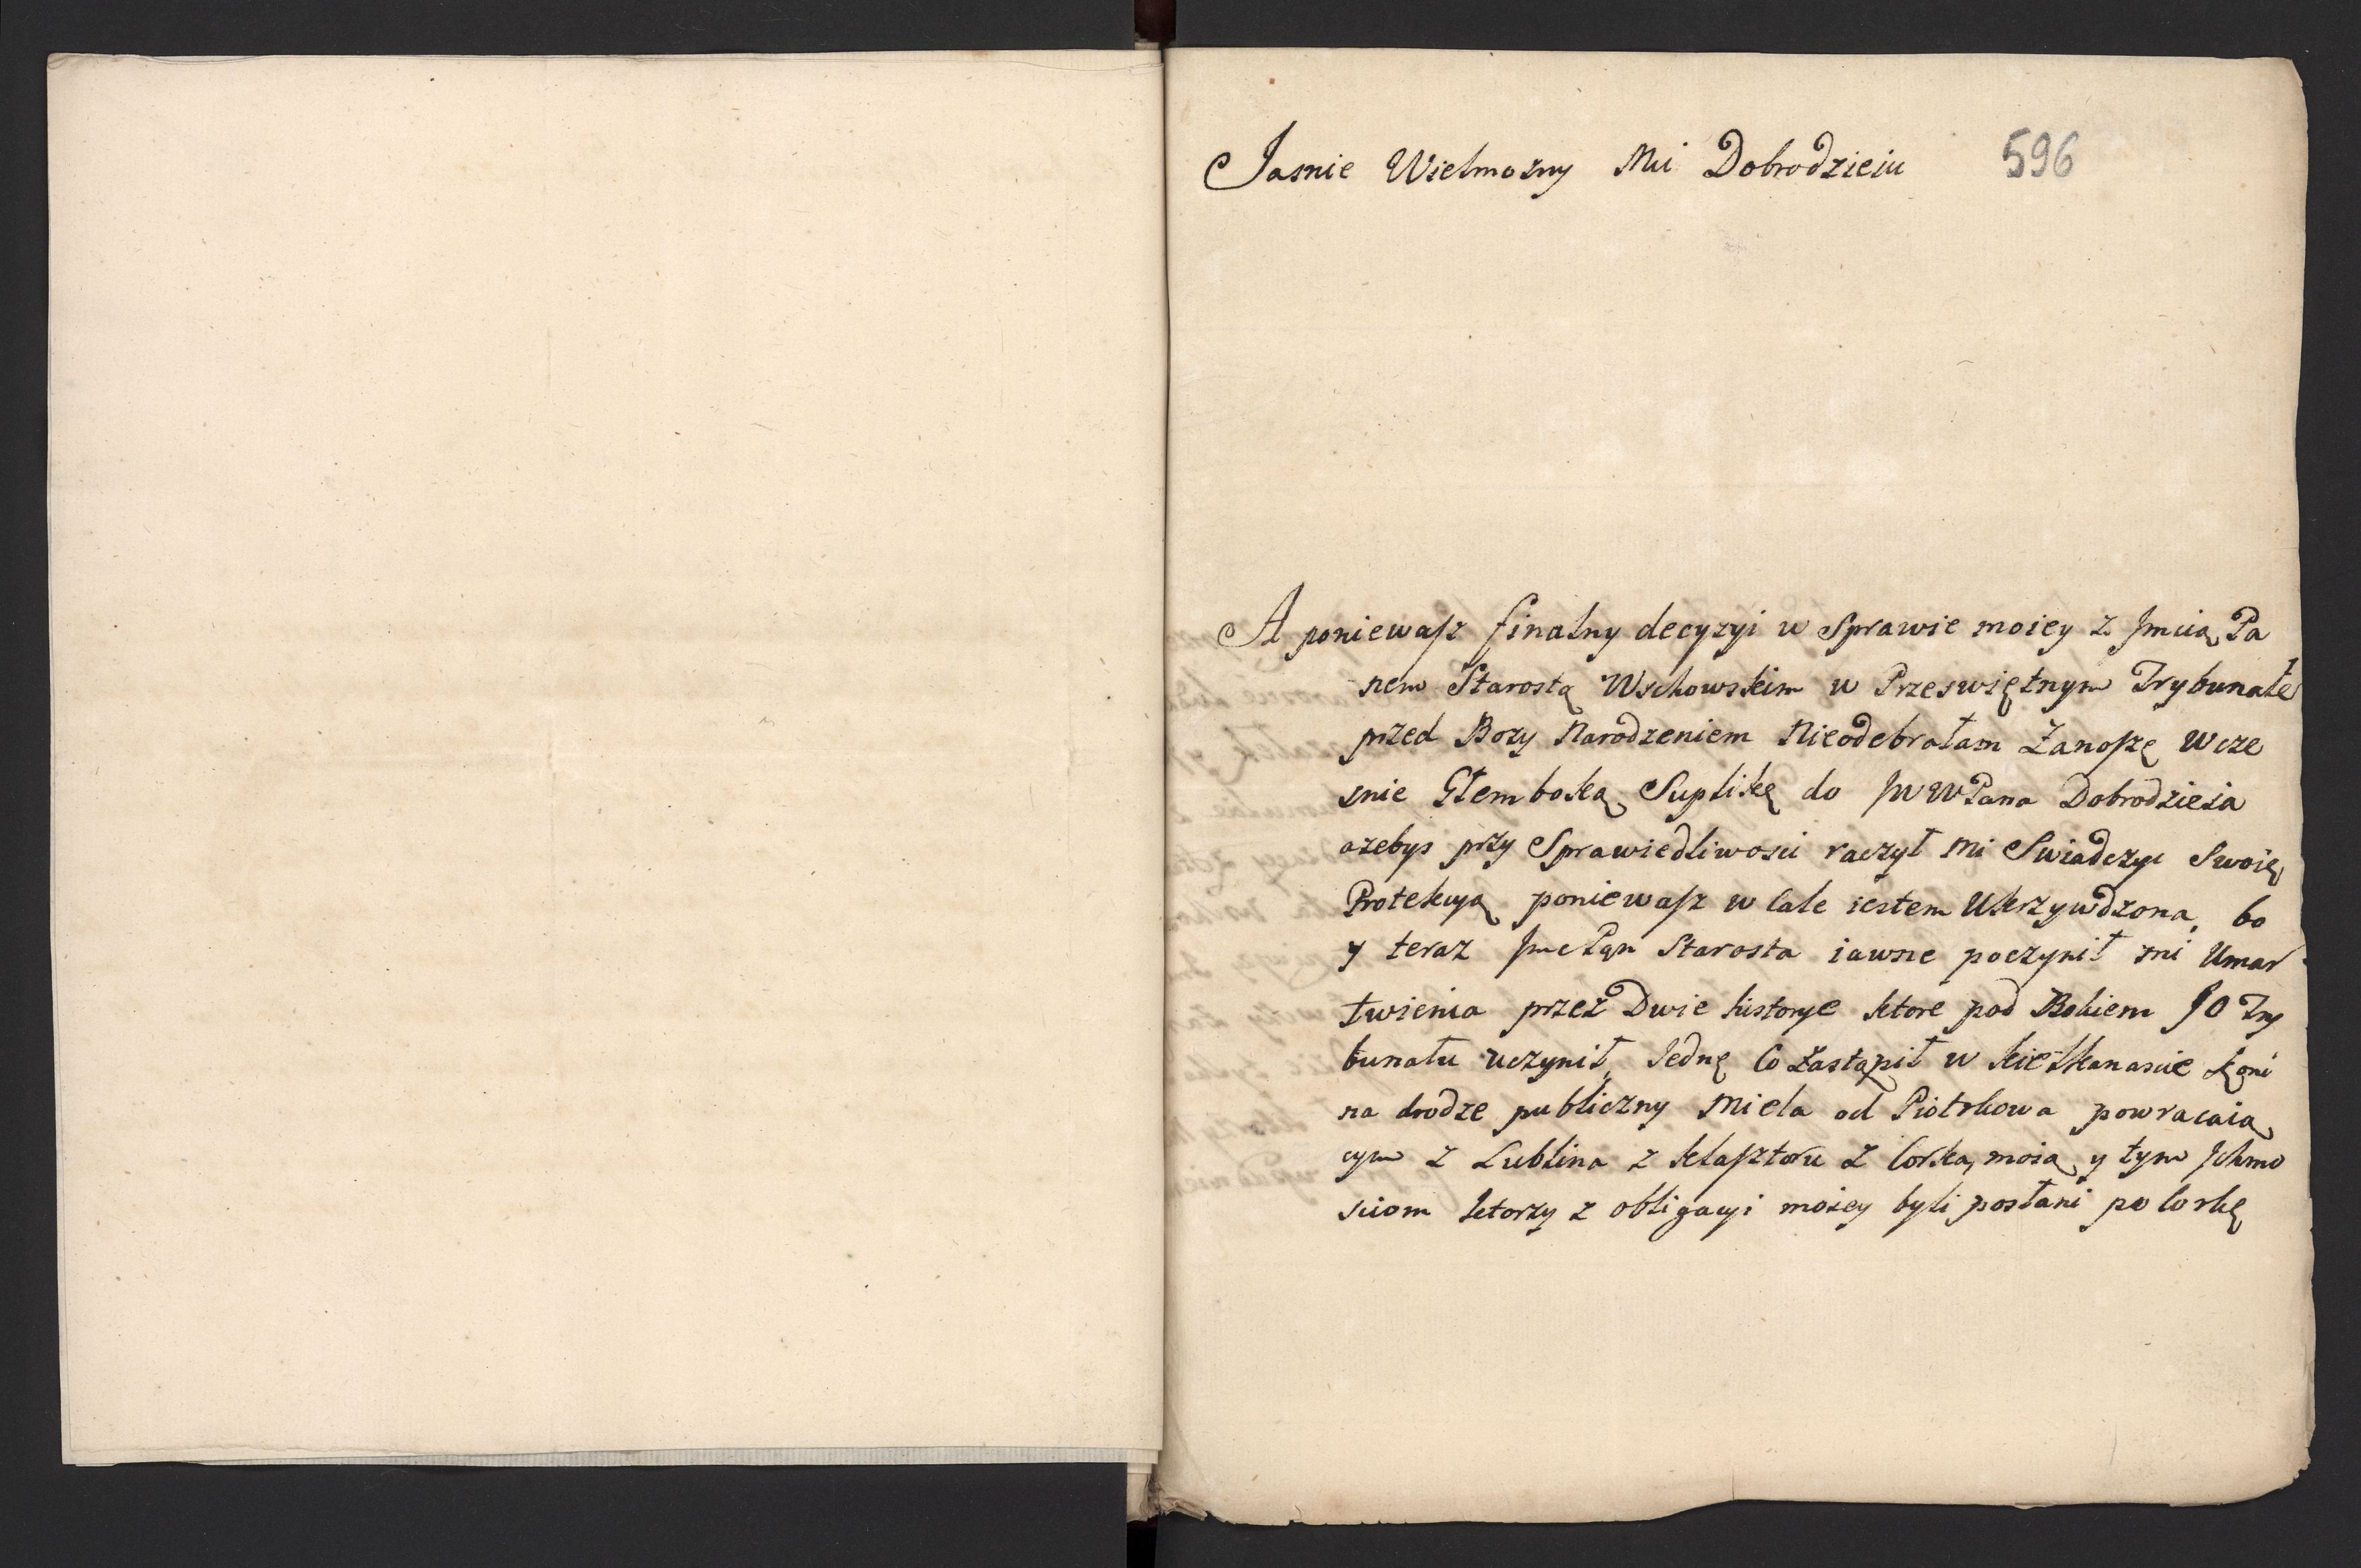 Jasnie Wielmozny Mći Dobrodzieiu 596
A poniewasz finalny decyzyi w Sprawie moiey z Jmcią Pa
nem Starostą Wschowskim w Przeswiętnym Trybunale
przed Bozy Narodzeniem Nieodebrałam Zanoszę wcze
snie Głemboką Suplikę do JWWPana Dobrodzieia
azebys przy Sprawiedliwosci raczył mi Swiadczyc Swoię
Protekcyą poniewasz w Cale iestem Ukrzywdzona, bo
y teraz Jmc Pan Starosta iawne poczynił mi Umar
twienia przez Dwie historye ktore pod Bokiem JO Try
bunału uczynił, Jednę Co Zastąpił w kilkanascie koni
na drodze publiczny Miela od Piotrkowa powracaią
cym z Lublina z klasztoru z Corką moią y tym Ichmo
sciom ktorzy z obligacyi moiey byli posłani po Corkę